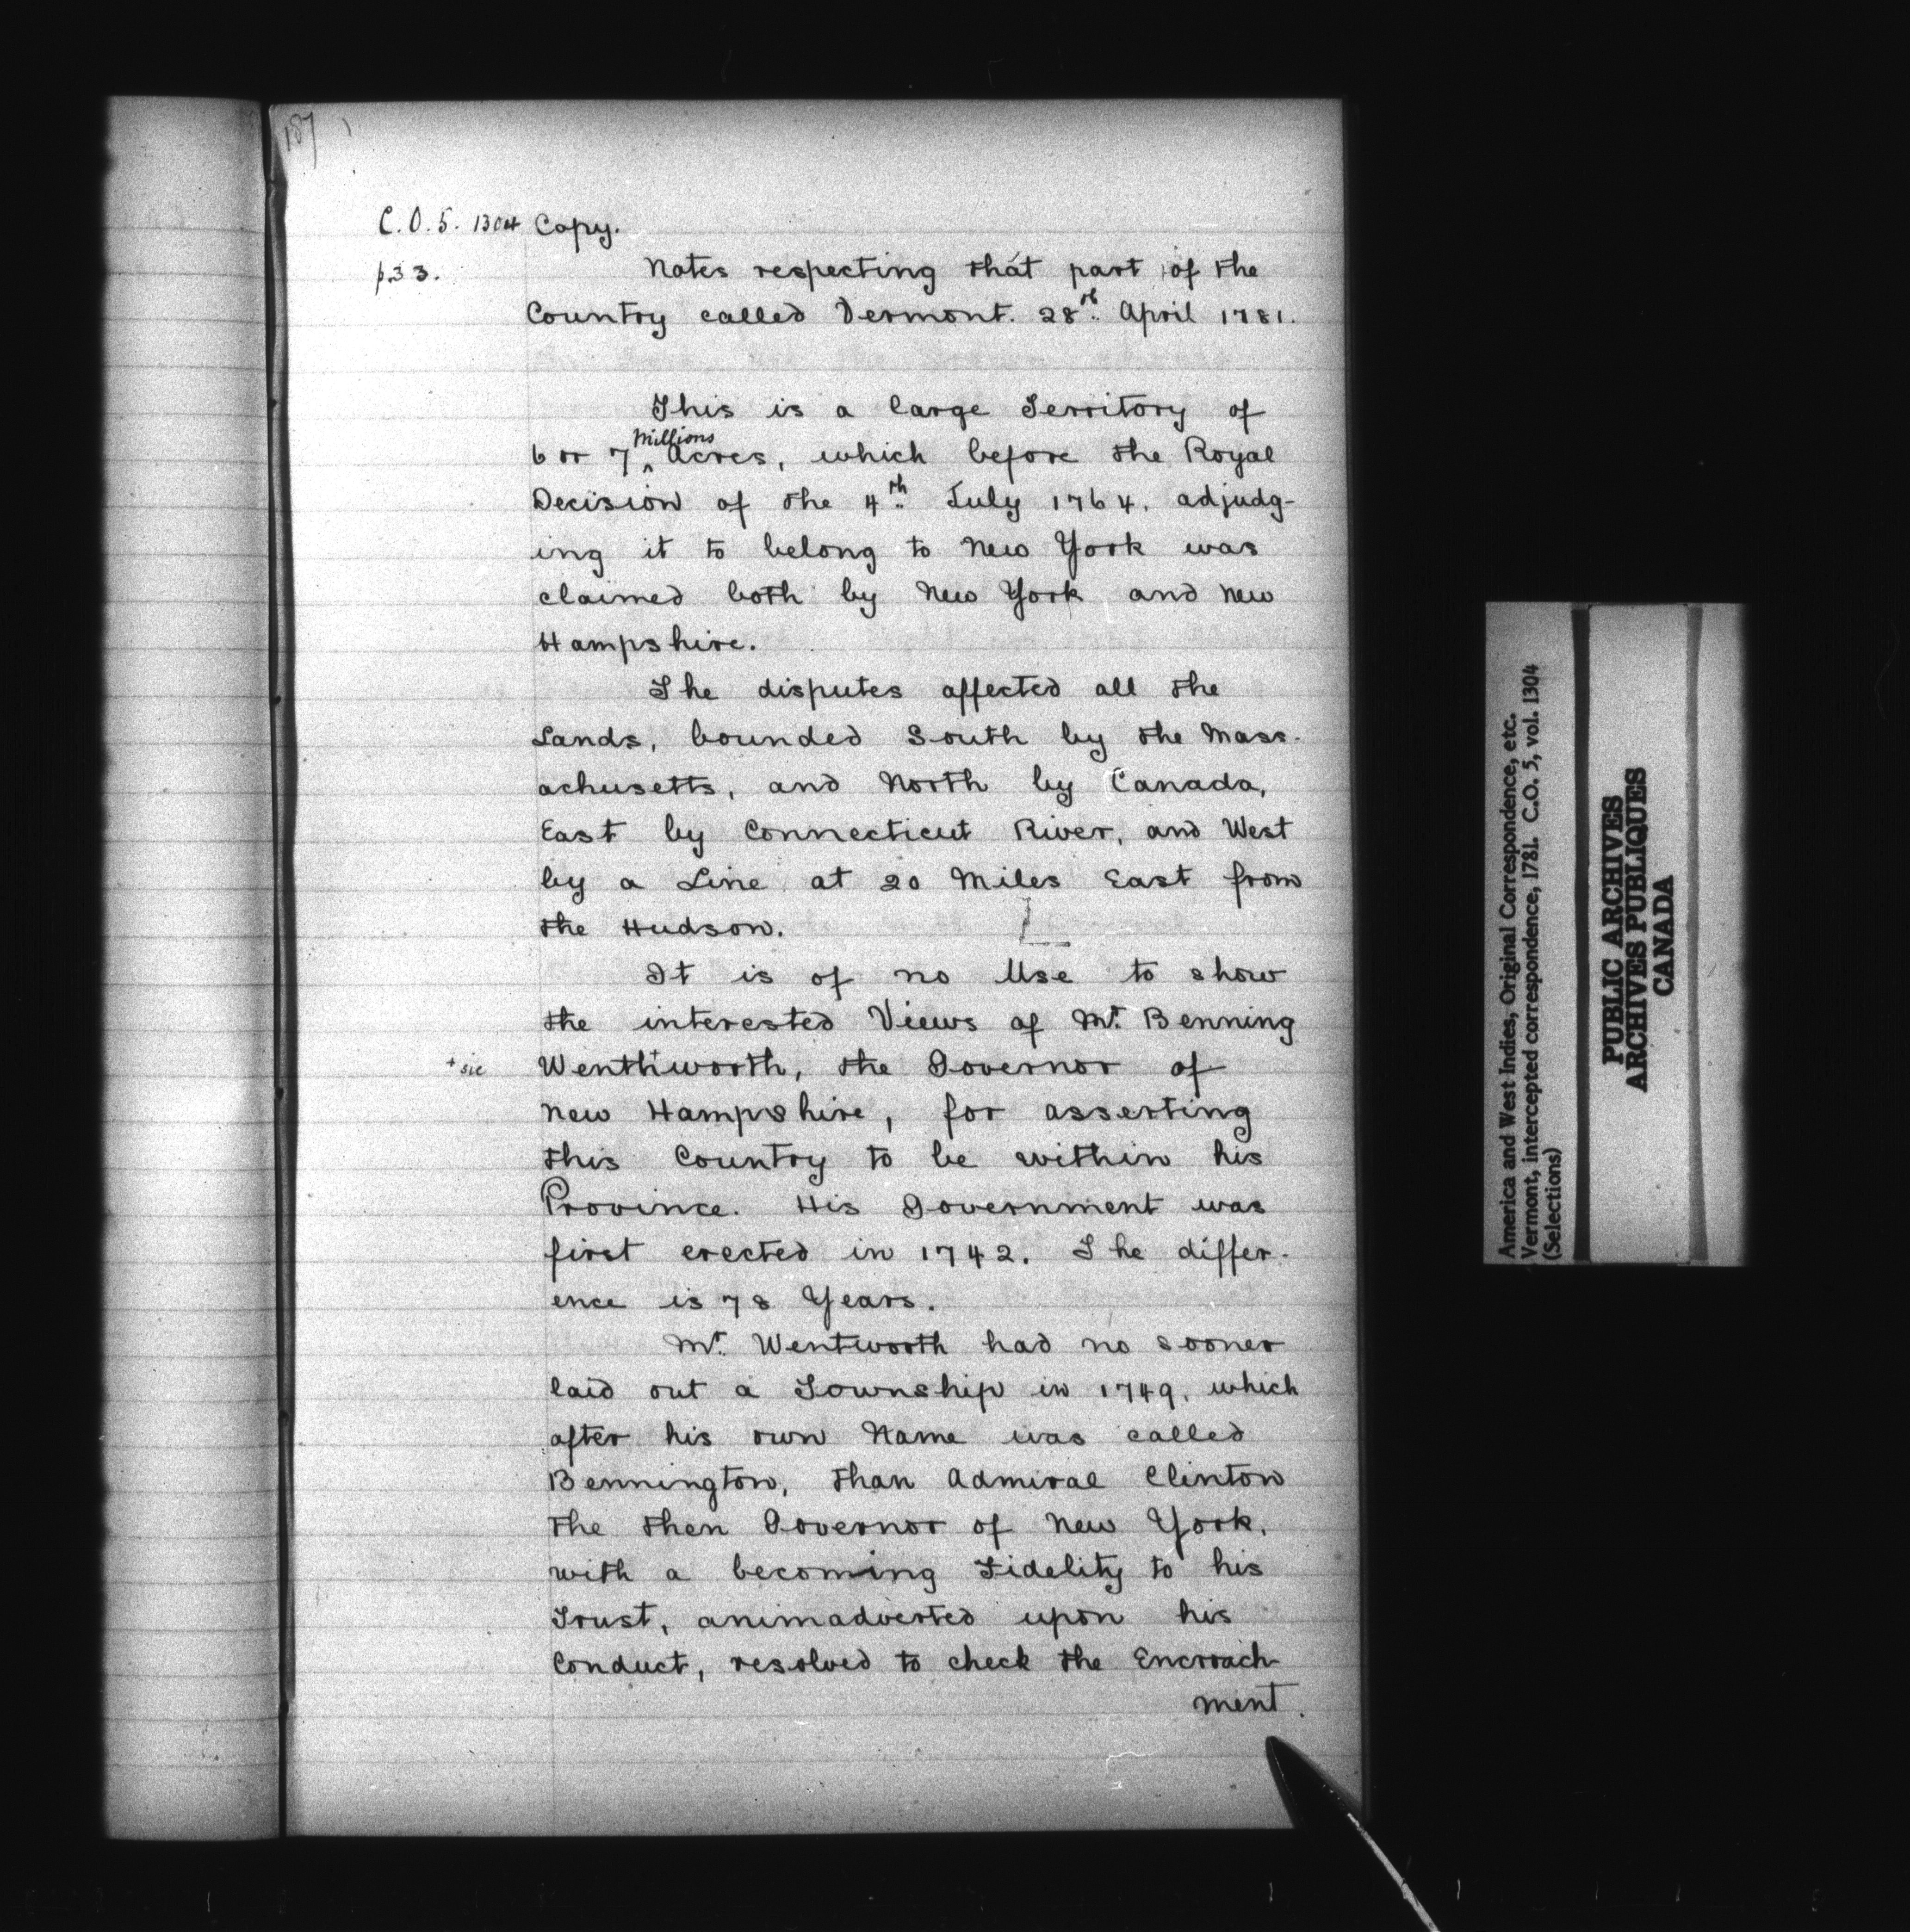 187
C.O.5. 1304 Copy.
p.33.
Notes respecting that part of the
Country called Vermont. 28th. April 1781.
This is a large Territory of
6 or 7 ^ Millions Acres, which before the Royal
Decision of the 4th. July 1764. adjudg-
ing it to belong to New York was
claimed both by New York and New
Hampshire.
The disputes affected all the
Lands, bounded South by the Mass-
achusetts, and North by Canada,
East by Connecticut River, and West
by a Line at 20 Miles East from
the Hudson.
It is of no Use to show
the interested Views of Mr. Benning
+ sic Wenth+worth, the Governor of
New Hampshire, for asserting
this Country to be within his
Province. His Government was
first erected in 1742. The differ-
ence is 78 Years.
Mr. Wentworth had no sooner
laid out a Township in 1749, which
after his own Name was called
Bennington, than Admiral Clinton
the then Governor of New York,
with a becoming Fidelity to his
Trust, animadverted upon his
Conduct, resolved to check the Encroach-
ment.
America and West Indies, Original Correspondence, etc.
Vermont, intercepted correspondence, 1781. C.O. 5, vol. 1304
(Selections)
PUBLIC ARCHIVES
ARCHIVES PUBLIQUES
CANADA